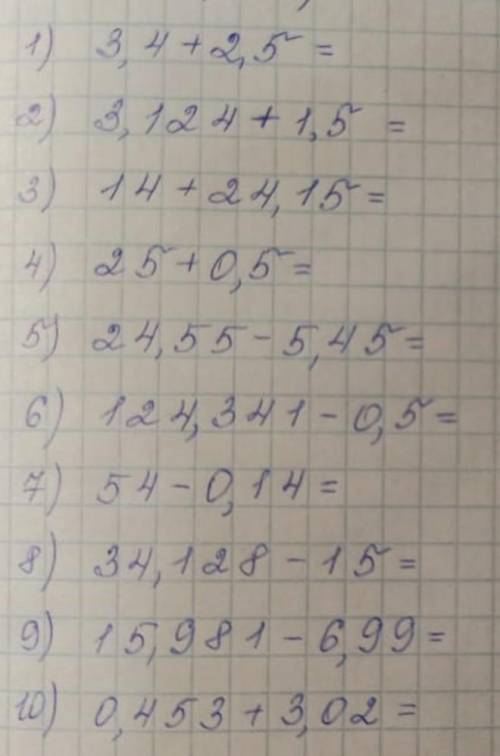 1) 3,4+2,5=
2) 3,124+1,5=
3) 14+24,15=
4) 25+0,5=
5) 24,55-5,45=
6) 124,341-0,5=
7) 54-0,14=
8) 34,128-15=
9) 15,981-6,99=
10) 0,453+3,02=